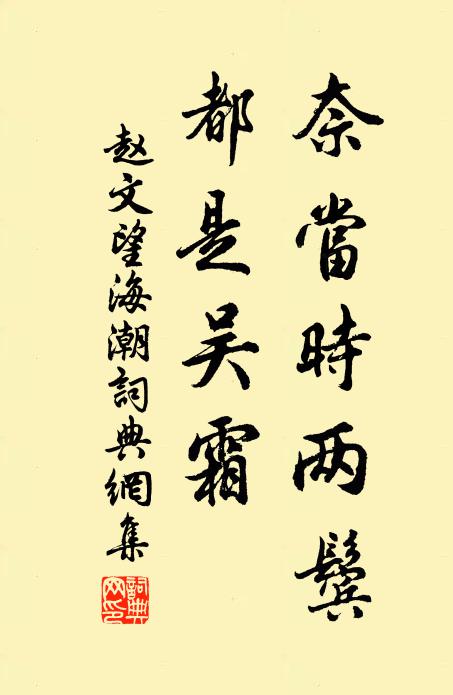 奈當時两鬓
都是吴霜
赵文望海潮詞典網集
詞典网印